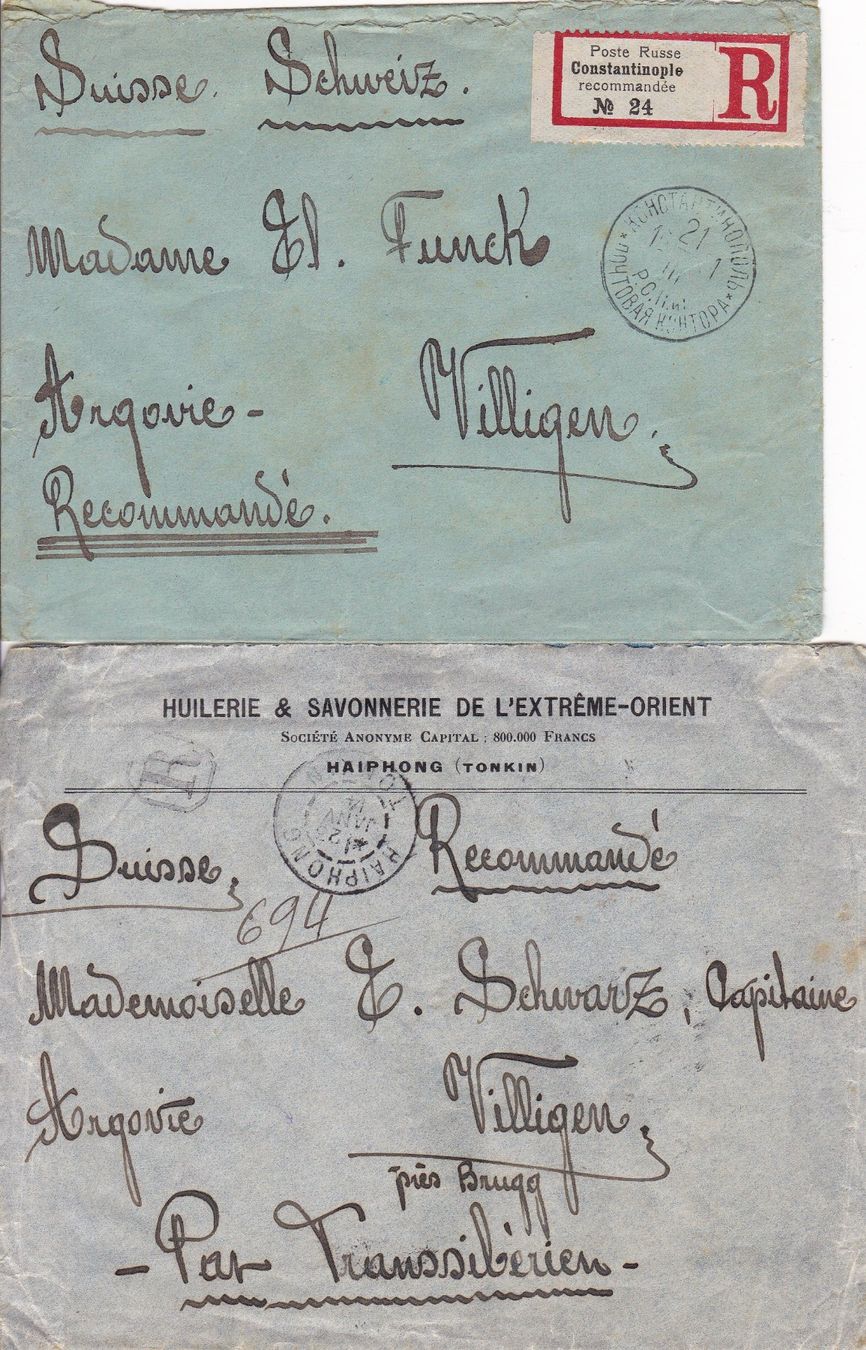 Suisse. Schweiz.
Poste Russe
Constantinople
recommandée
№ 24
R
Madame El. Funck
КОНСТАНТИНОПОЛЬ
21
1
Р.О.П.иТ
ПОЧТОВАЯ КОНТОРА
Argovie - Villigen.
Recommandé.
HUILERIE & SAVONNERIE DE L'EXTRÊME-ORIENT
SOCIÉTÉ ANONYME CAPITAL : 800.000 FRANCS
HAIPHONG (TONKIN)
R
HAIPHONG
TONKIN
JANV
14
Suisse, Recommandé
694
Mademoiselle E. Schwarz, Capitaine
Argovie Villigen,
près Brugg
- Par Transsibérien -